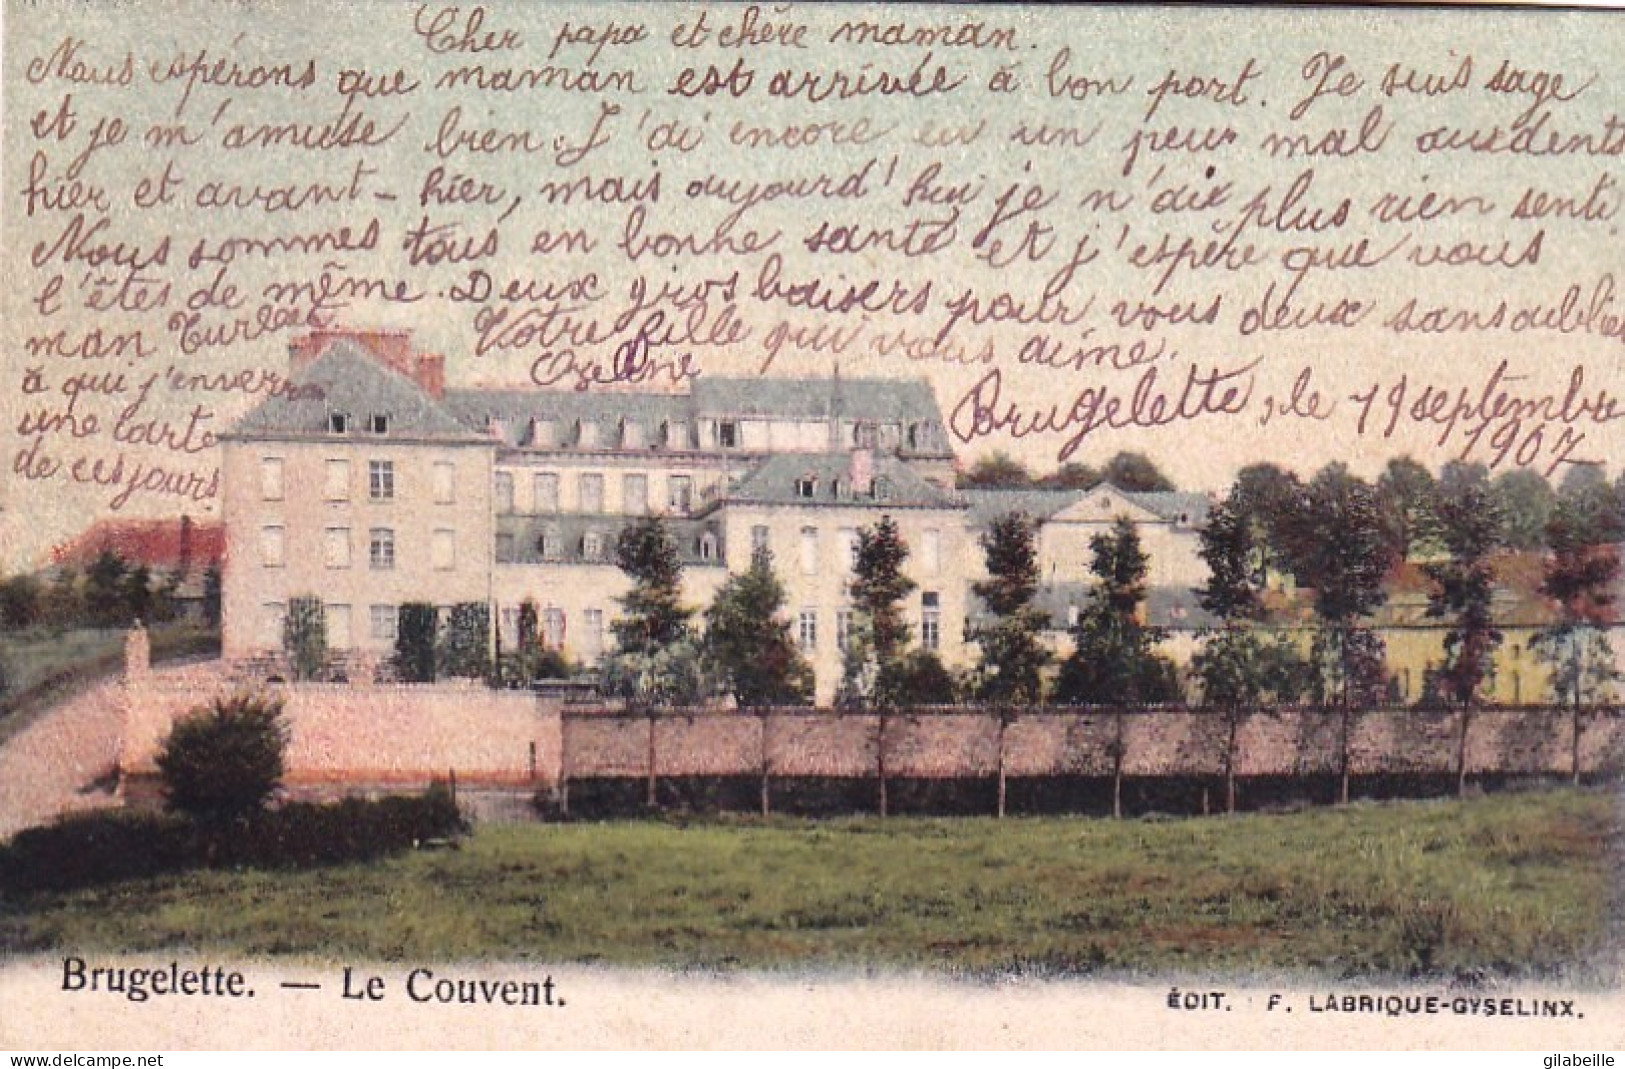 Cher papa et chère maman.
Nous espérons que maman est arrivée à bon port. Je suis sage
et je m'amuse bien. J'ai encore eu un peu mal aux dents
hier et avant-hier, mais aujourd'hui je n'aix plus rien senti.
Nous sommes tous en bonne santé et j'espère que vous
l'êtes de même. Deux gros baisers pour vous deux sans oublier
man
Votre fille qui vous aime.
à qui j'enverrai
Ozeline
Brugelette, le 19 septembre
1907
une carte
de ces jours
Brugelette. — Le Couvent.
ÉDIT. F. LABRIQUE-GYSELINX.
gilabeille
www.delcampe.net